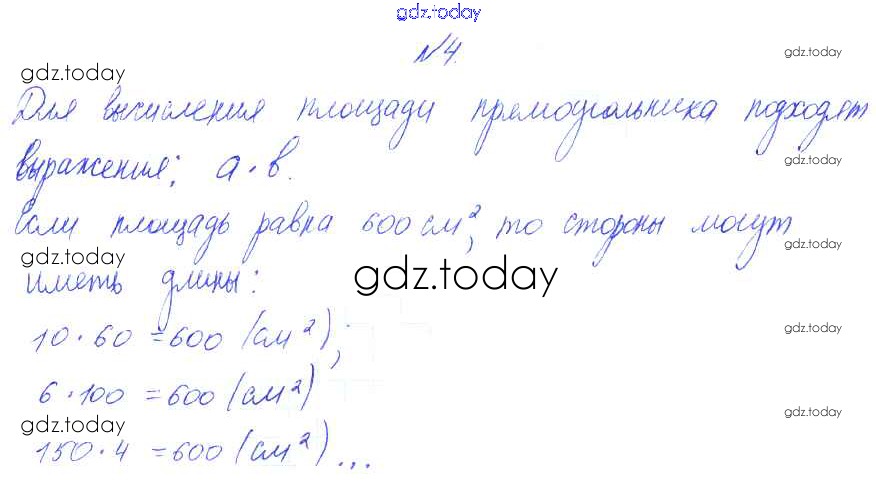 gdz.today
№4.
gdz.today
gdz.today
Для вычисления площади прямоугольника подходят
выражения: a·в.
gdz.today
Если площадь равна 600 см², то стороны могут
gdz.today
gdz.today
иметь длины:
gdz.today
10·60 =600 (см²);
gdz.today
6·100 =600 (см²)
gdz.today
gdz.today
150·4 =600 (см²)...